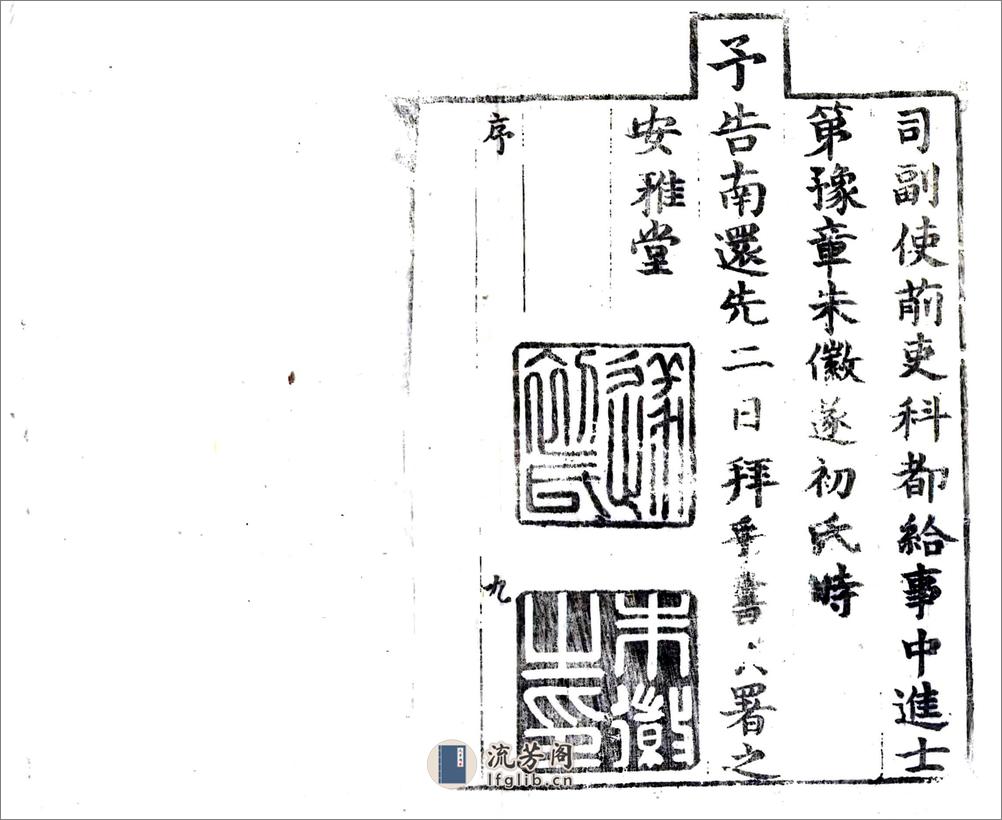 司副使前吏科都給事中進士
第豫章朱徽遂初氏時
予告南還先二日拜手書 署之
安雅堂
序
九
遂初氏
朱徽之印
流芳阁
lfglib.cn